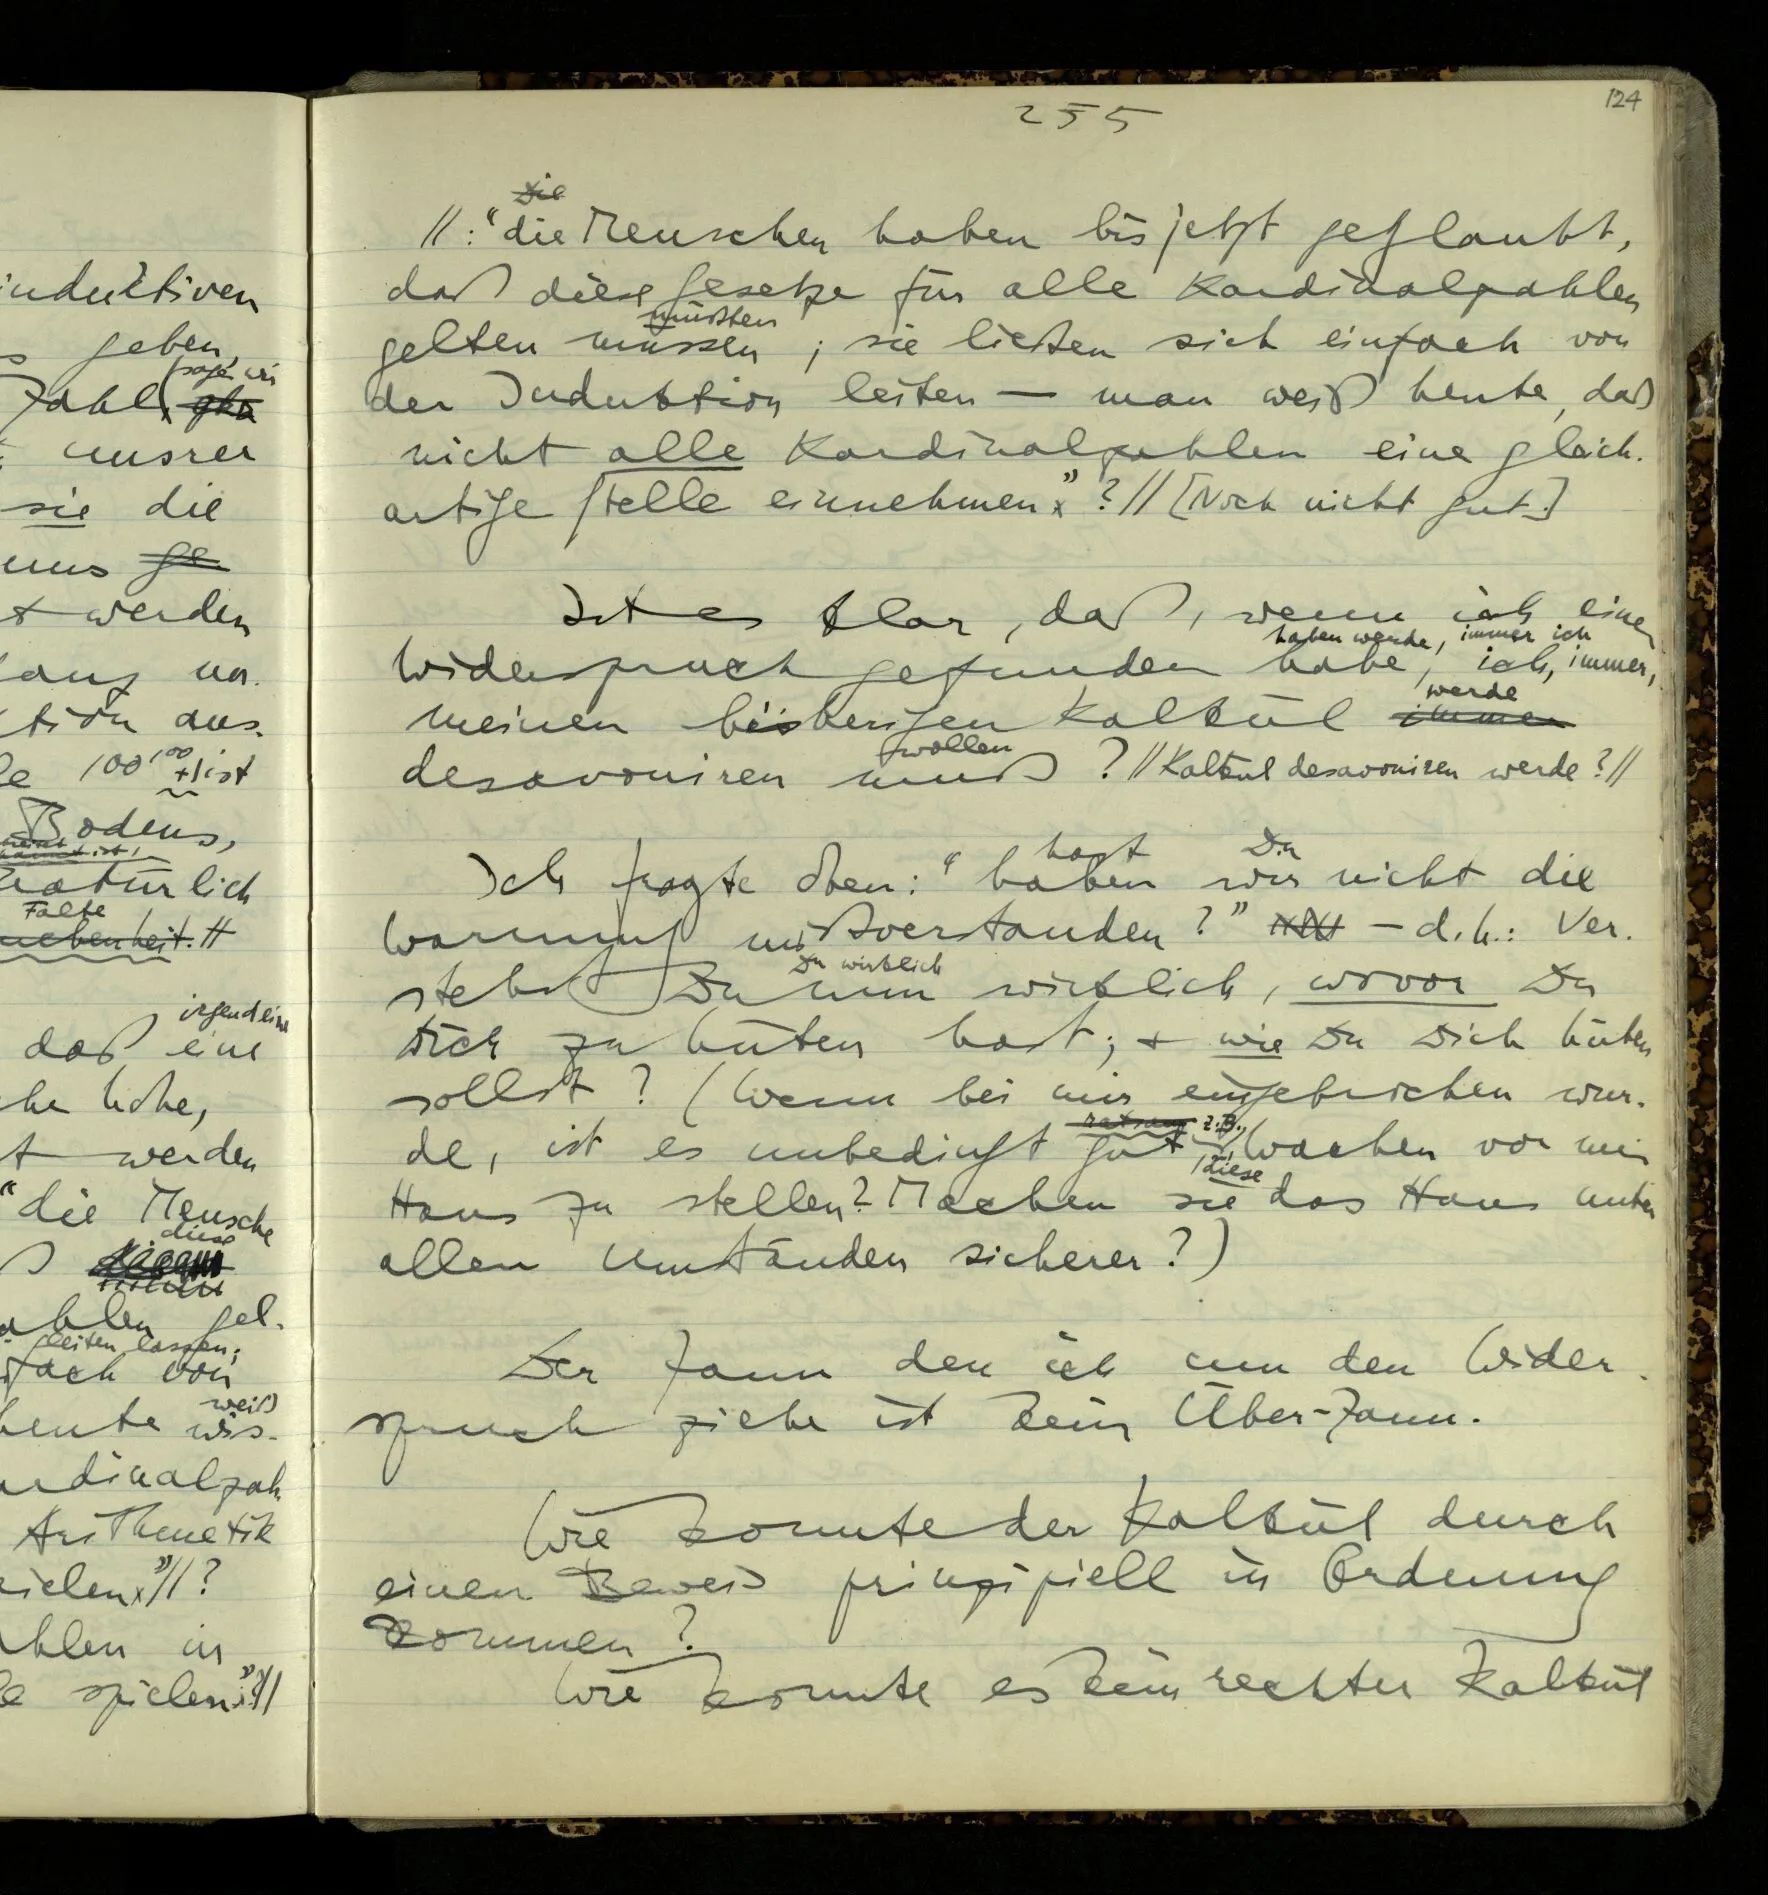 induktiven
geben,
sagen wir
Zahl
unsrer
sie die
uns ge
t werden
ang von
tion aus-
100¹⁰⁰ + 1 ist
Bodens,
natürlich
Falte
irgendeine
daß eine
che höhe,
t werden
"die Mensche
diese
ahlen gel-
gleiten lassen;
fach von
weiß
heute wis-
ardinalzah
Arithmetik
pielen"//?
ahlen in
le spielen"?//
124
255
Die
//: "die Menschen haben bis jetzt geglaubt,
daß diese Gesetze für alle Kardinalzahlen
müßten
gelten müssen; sie ließen sich einfach von
der Induktion leiten — man weiß heute, daß
nicht alle Kardinalzahlen eine gleich-
artige Stelle einnehmen."?// [Noch nicht gut.]
Ist es klar, daß, wenn ich einen
haben werde, immer ich
Widerspruch gefunden habe, ich, immer,
werde
meinen bisherigen Kalkül immer
wollen
desavouiren muß? // Kalkül desavouiren werde? //
hast Du
Ich fragte oben: "haben wir nicht die
Warnung mißverstanden?" — d.h.: Ver-
Du wirklich
stehst Du nun wirklich, wovor Du
Dich zu hüten hast; + wie Du Dich hüten
sollst? (Wenn bei mir eingebrochen wur-
ratsam z.B.,
de, ist es unbedingt gut, Wachen vor mein
diese
Haus zu stellen? Machen sie das Haus unter
allen Umständen sicherer?)
Der Zaun den ich um den Wider-
spruch ziehe ist kein Über-Zaun.
Wie konnte der Kalkül durch
einen Beweis prinzipiell in Ordnung
kommen?
Wie konnte es kein rechter Kalkül